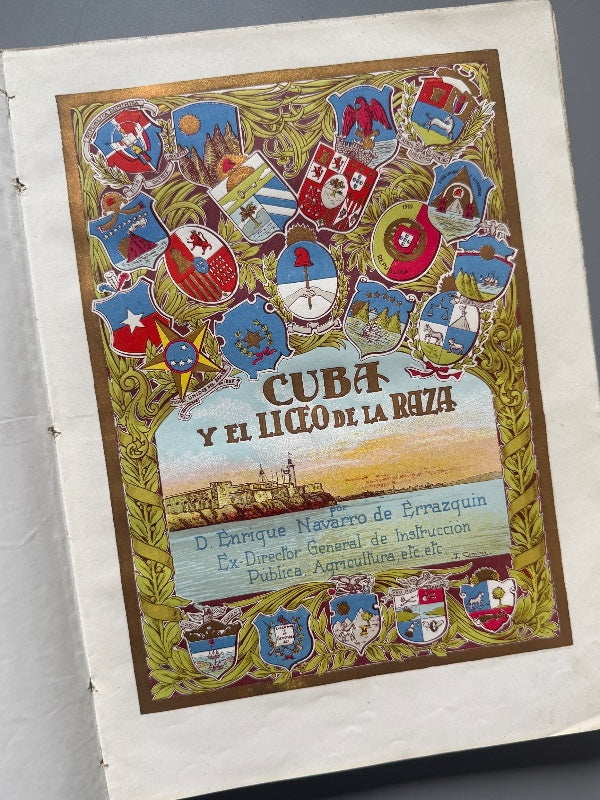 CUBA
Y EL LICEO DE LA RAZA
por
D. Enrique Navarro de Errazquin
Ex-Director General de Instruccion
Publica Agricultura, etc. etc.